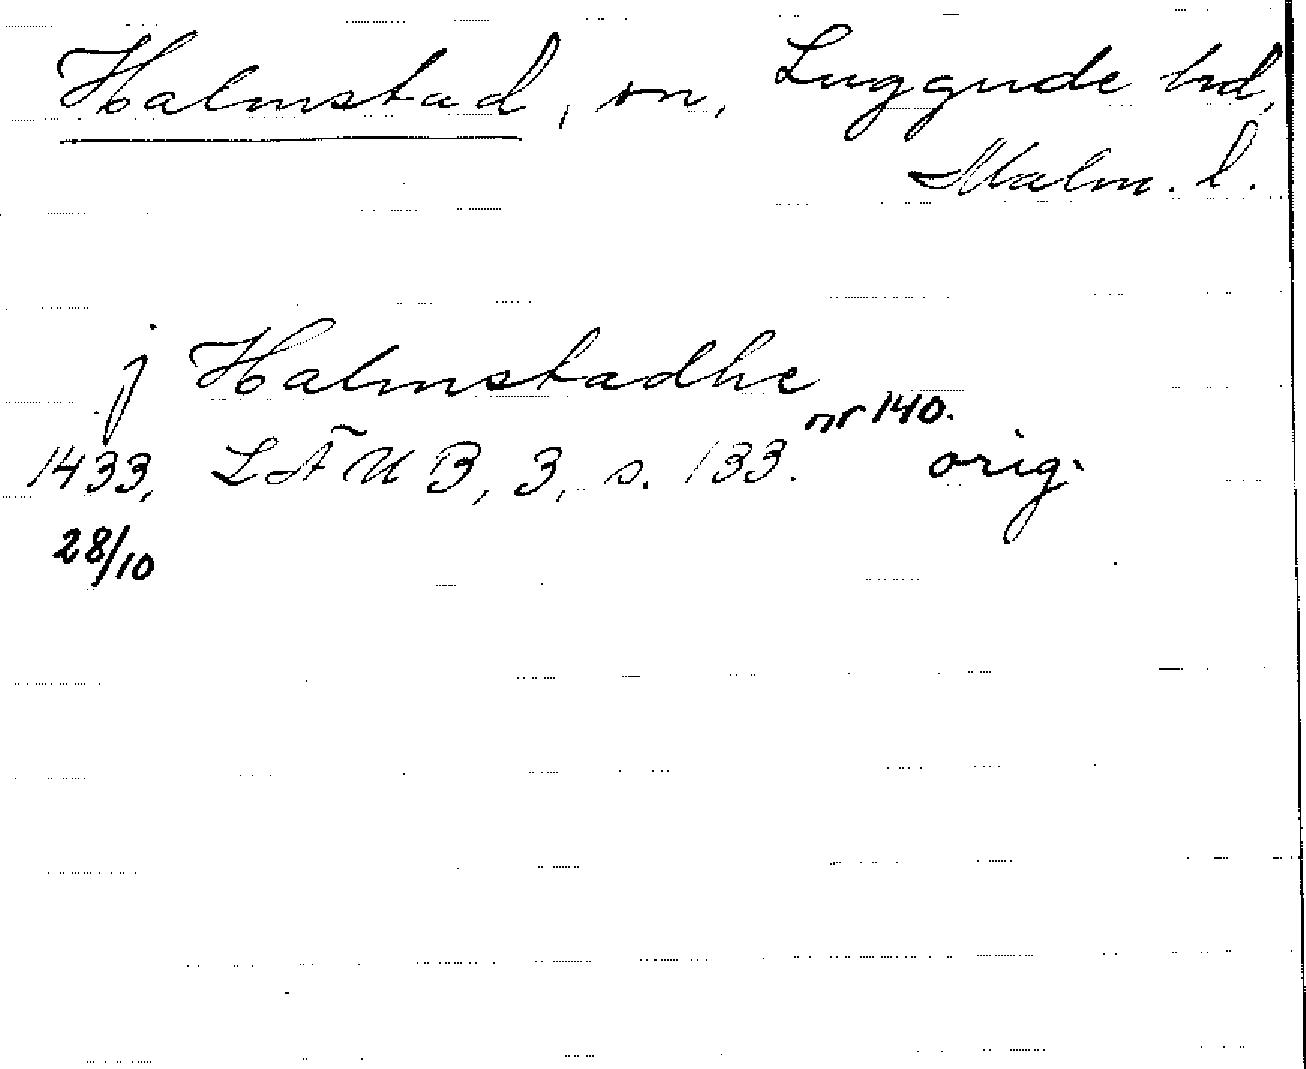 Halmstad, sn, Luggude hd,
Malm. l.
j Halmstadhe
nr 140.
1433, LÄUB, 3, s. 133. orig.
28/10